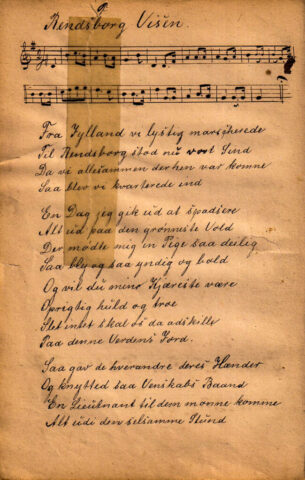 Rendsborg Visen.
Fra Jylland vi lystig marscherede
Til Rendsborg stod nu vort Sind
Da vi allesammen der hen var komne
Saa blev vi kvarterede ind
En Dag jeg gik ud at spadsere
Alt ud paa den grønneste Vold
Der mødte mig in Pige saa deilig
Saa bly og saa yndig og bold
Og vil du minø Kjæreste være
Oprigtig huld og troe
Slet intet skal os da adskille
Paa denne Verdens Jord.
Saa gav de hverandre deres Hænder
Og knytted saa Venskabs Baand
En Lieutnant til dem monne komme
Alt udi den selsamme Stund